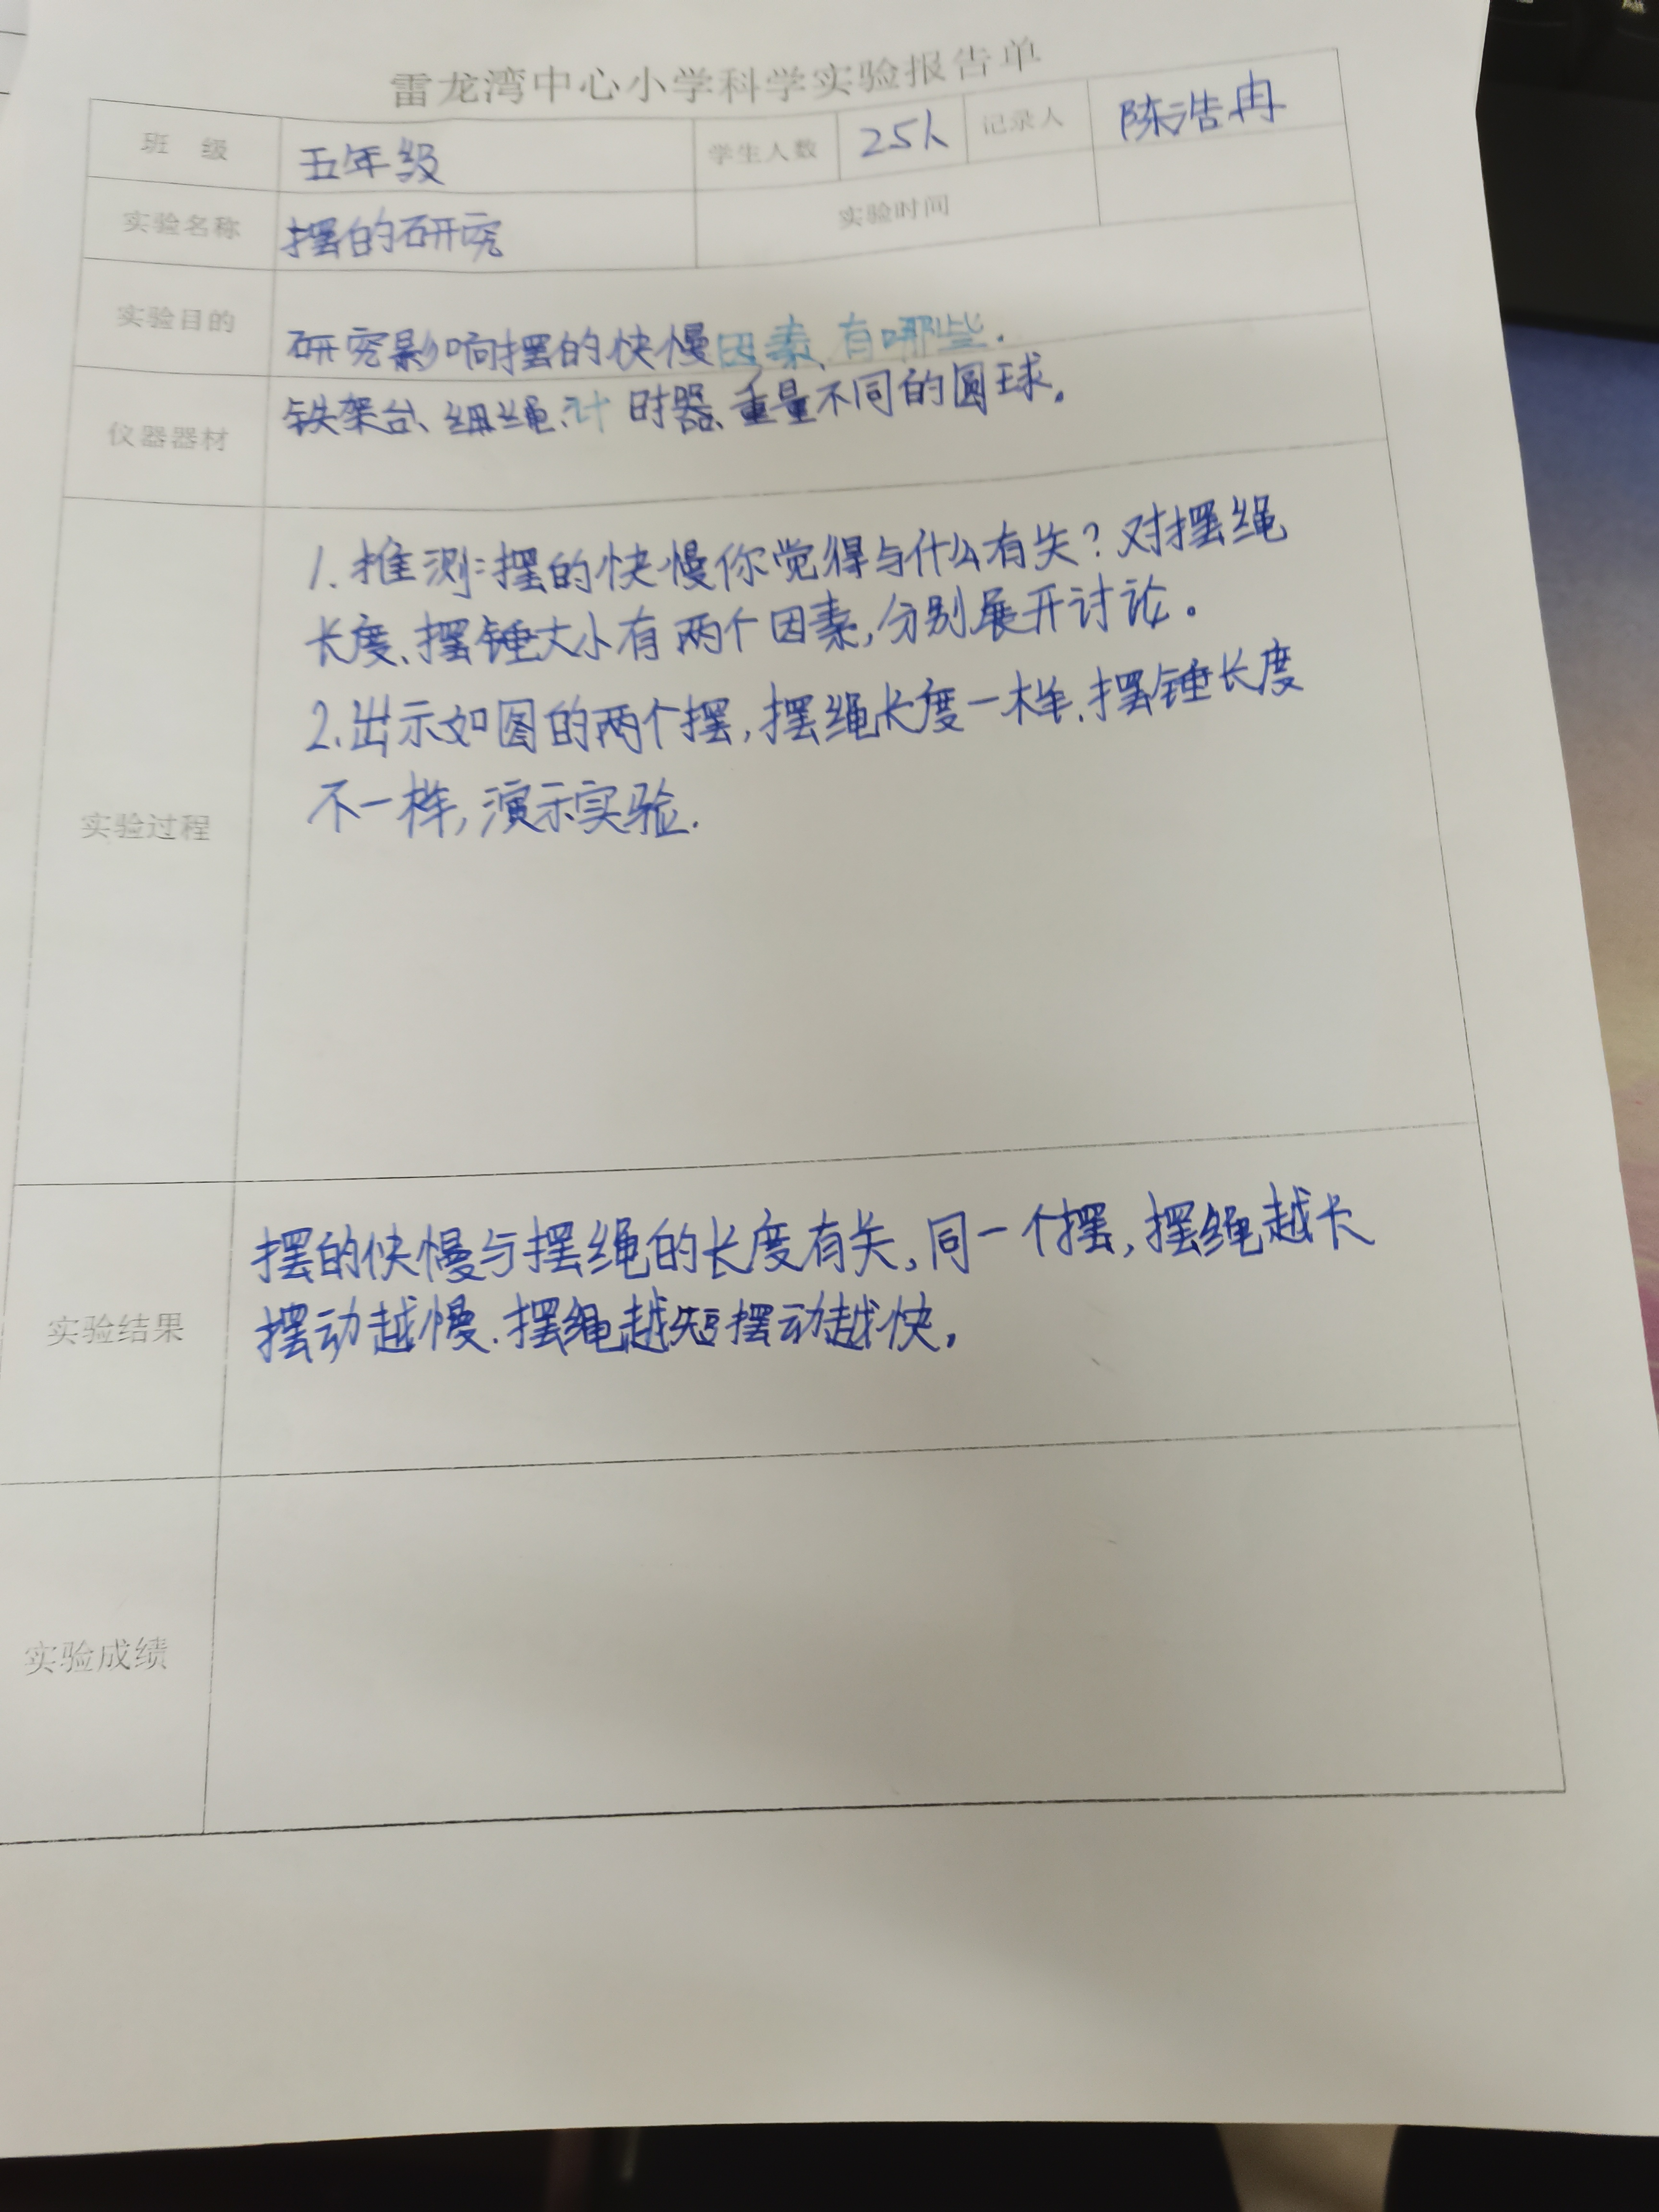 雷龙湾中心小学科学实验报告单
班 级 五年级 学生人数 25人 记录人 陈浩冉
实验名称 摆的研究 实验时间
实验目的 研究影响摆的快慢因素、有哪些.
仪器器材 铁架台、细绳、计时器、重量不同的圆球。
实验过程
1.推测:摆的快慢你觉得与什么有关?对摆绳
长度、摆锤大小有两个因素,分别展开讨论。
2.出示如图的两个摆,摆绳长度一样.摆锤长度
不一样,演示实验.
实验结果
摆的快慢与摆绳的长度有关,同一个摆,摆绳越长
摆动越慢.摆绳越短摆动越快。
实验成绩